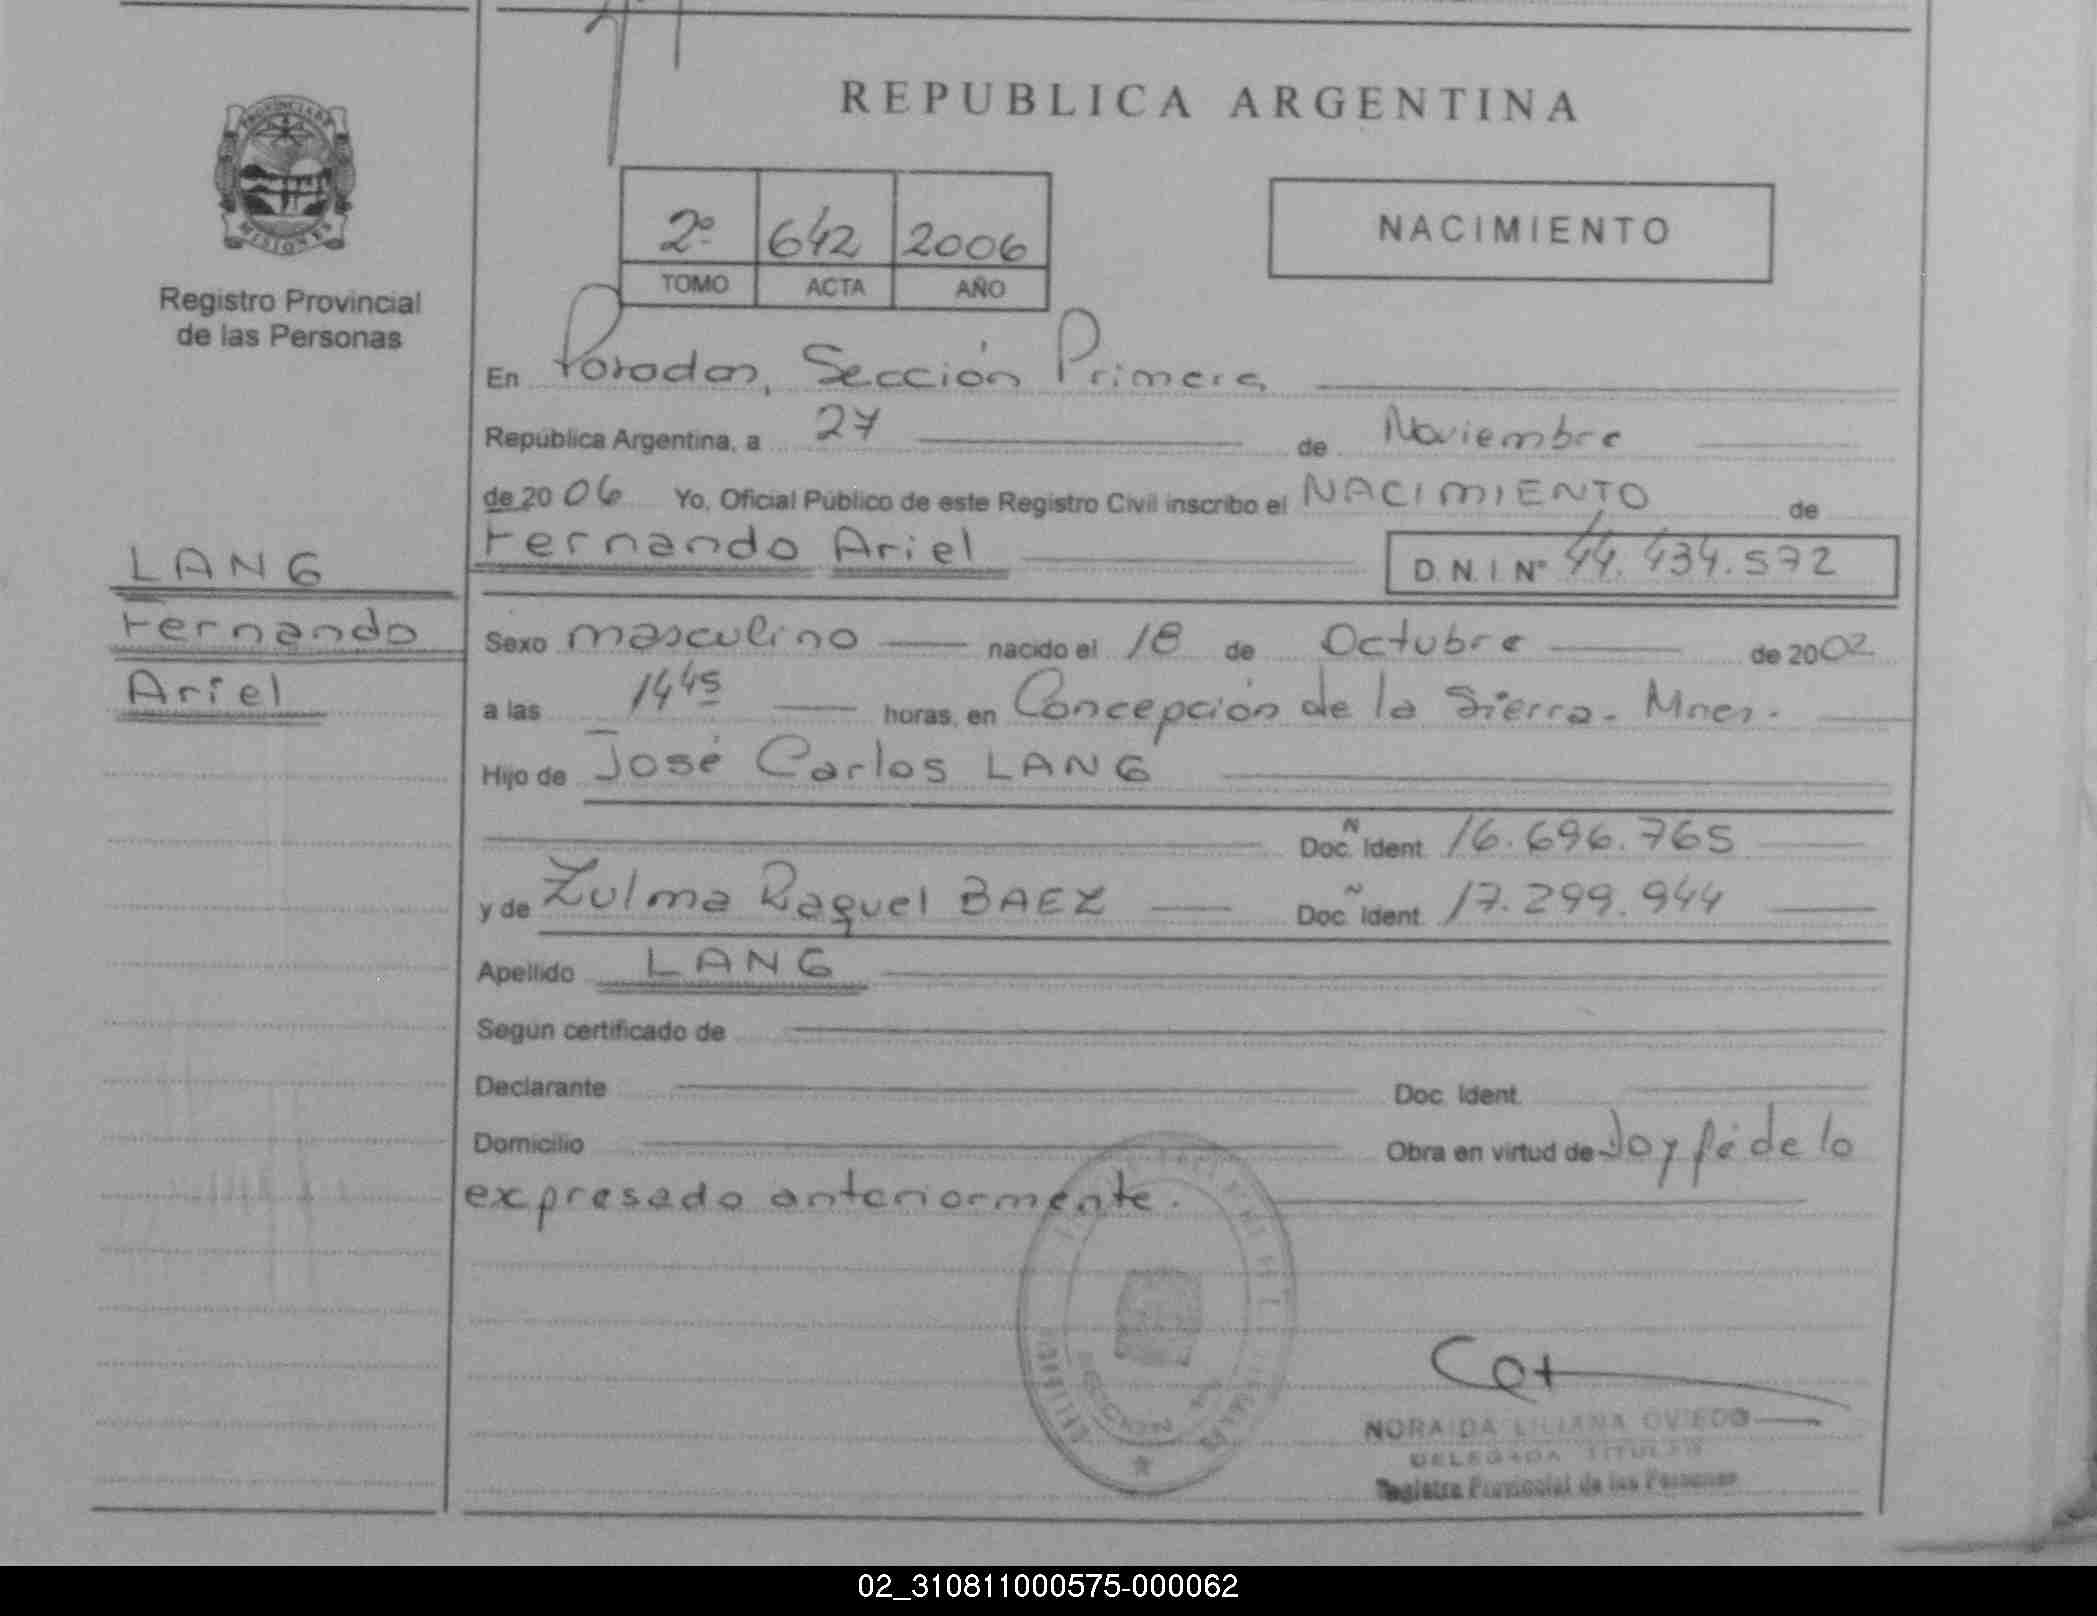 REPUBLICA ARGENTINA
PROVINCIA DE
MISIONES
Registro Provincial
de las Personas
2º 642 2006
TOMO ACTA AÑO
NACIMIENTO
En Posadas, Sección Primera
República Argentina, a 27 de Noviembre
de 2006 Yo, Oficial Público de este Registro Civil inscribo el NACIMIENTO de
Fernando Ariel D.N.I Nº 44.434.572
LANG
Fernando
Ariel
Sexo masculino nacido el 18 de Octubre de 2002
a las 14 45 horas, en Concepción de la Sierra. Mnes.
Hijo de José Carlos LANG
Doc. Ident. Ñ 16.696.765
y de Zulma Raquel BAEZ Doc. Ident. Ñ 17.299.944
Apellido LANG
Según certificado de
Declarante Doc. Ident.
Domicilio Obra en virtud de Doy fé de lo
expresado anteriormente.
NORAIDA LILIANA OVIEDO
DELEGADA TITULAR
Registro Provincial de las Personas
02_310811000575-000062